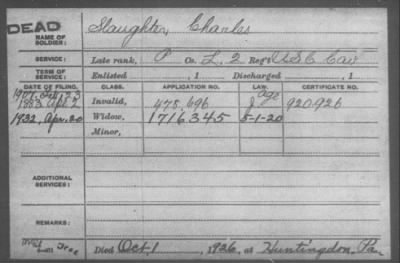 DEAD
NAME OF SOLDIER: Slaughter, Charles
SERVICE: Late rank, P Co. L, 2 Reg't U.S.C. Cav
TERM OF SERVICE: Enlisted , 1 Discharged , 1
DATE OF FILING. CLASS. APPLICATION NO. LAW. CERTIFICATE NO.
23 Age
Apr 7 Invalid, 478,696 920926
1932, Apr. 20 Widow, 1716345 5-1-20
Minor,
ADDITIONAL SERVICES:
REMARKS:
Died Oct, 1, 1926, at Huntingdon, Pa.